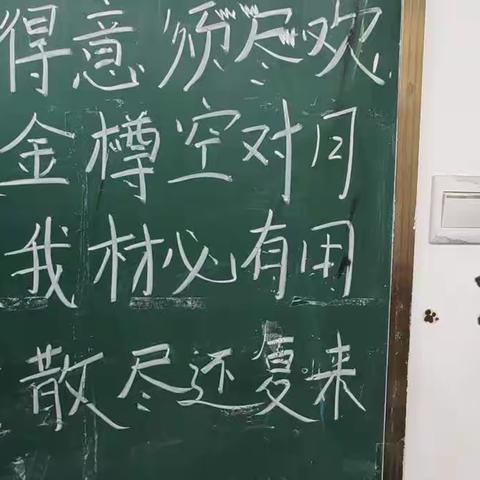 得意须尽欢
金樽空对月
我材必有用
散尽还复来